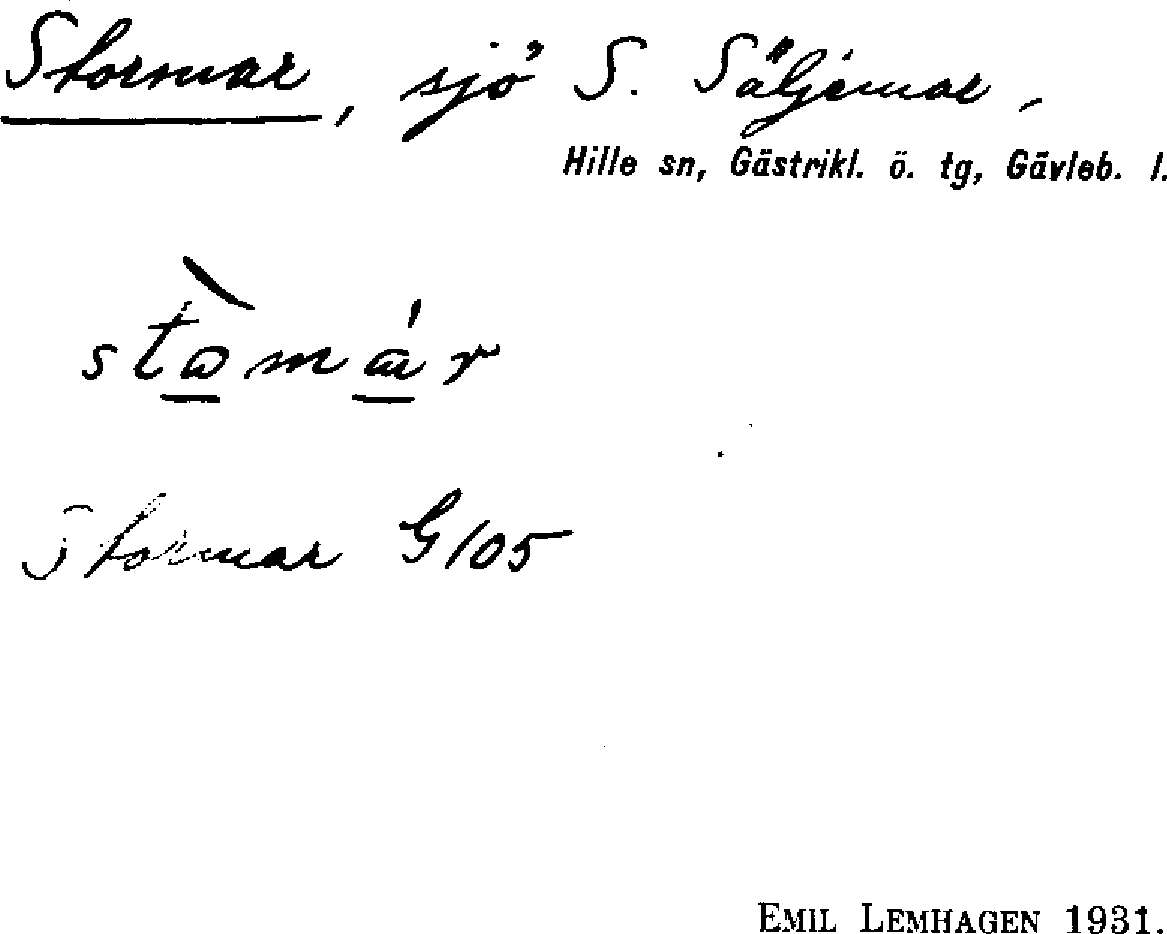 Stormar, sjö S. Säljemar,
Hille sn, Gästrikl. ö. tg, Gävleb. l.
stò̱má̱r
Stormar G105
EMIL LEMHAGEN 1931.